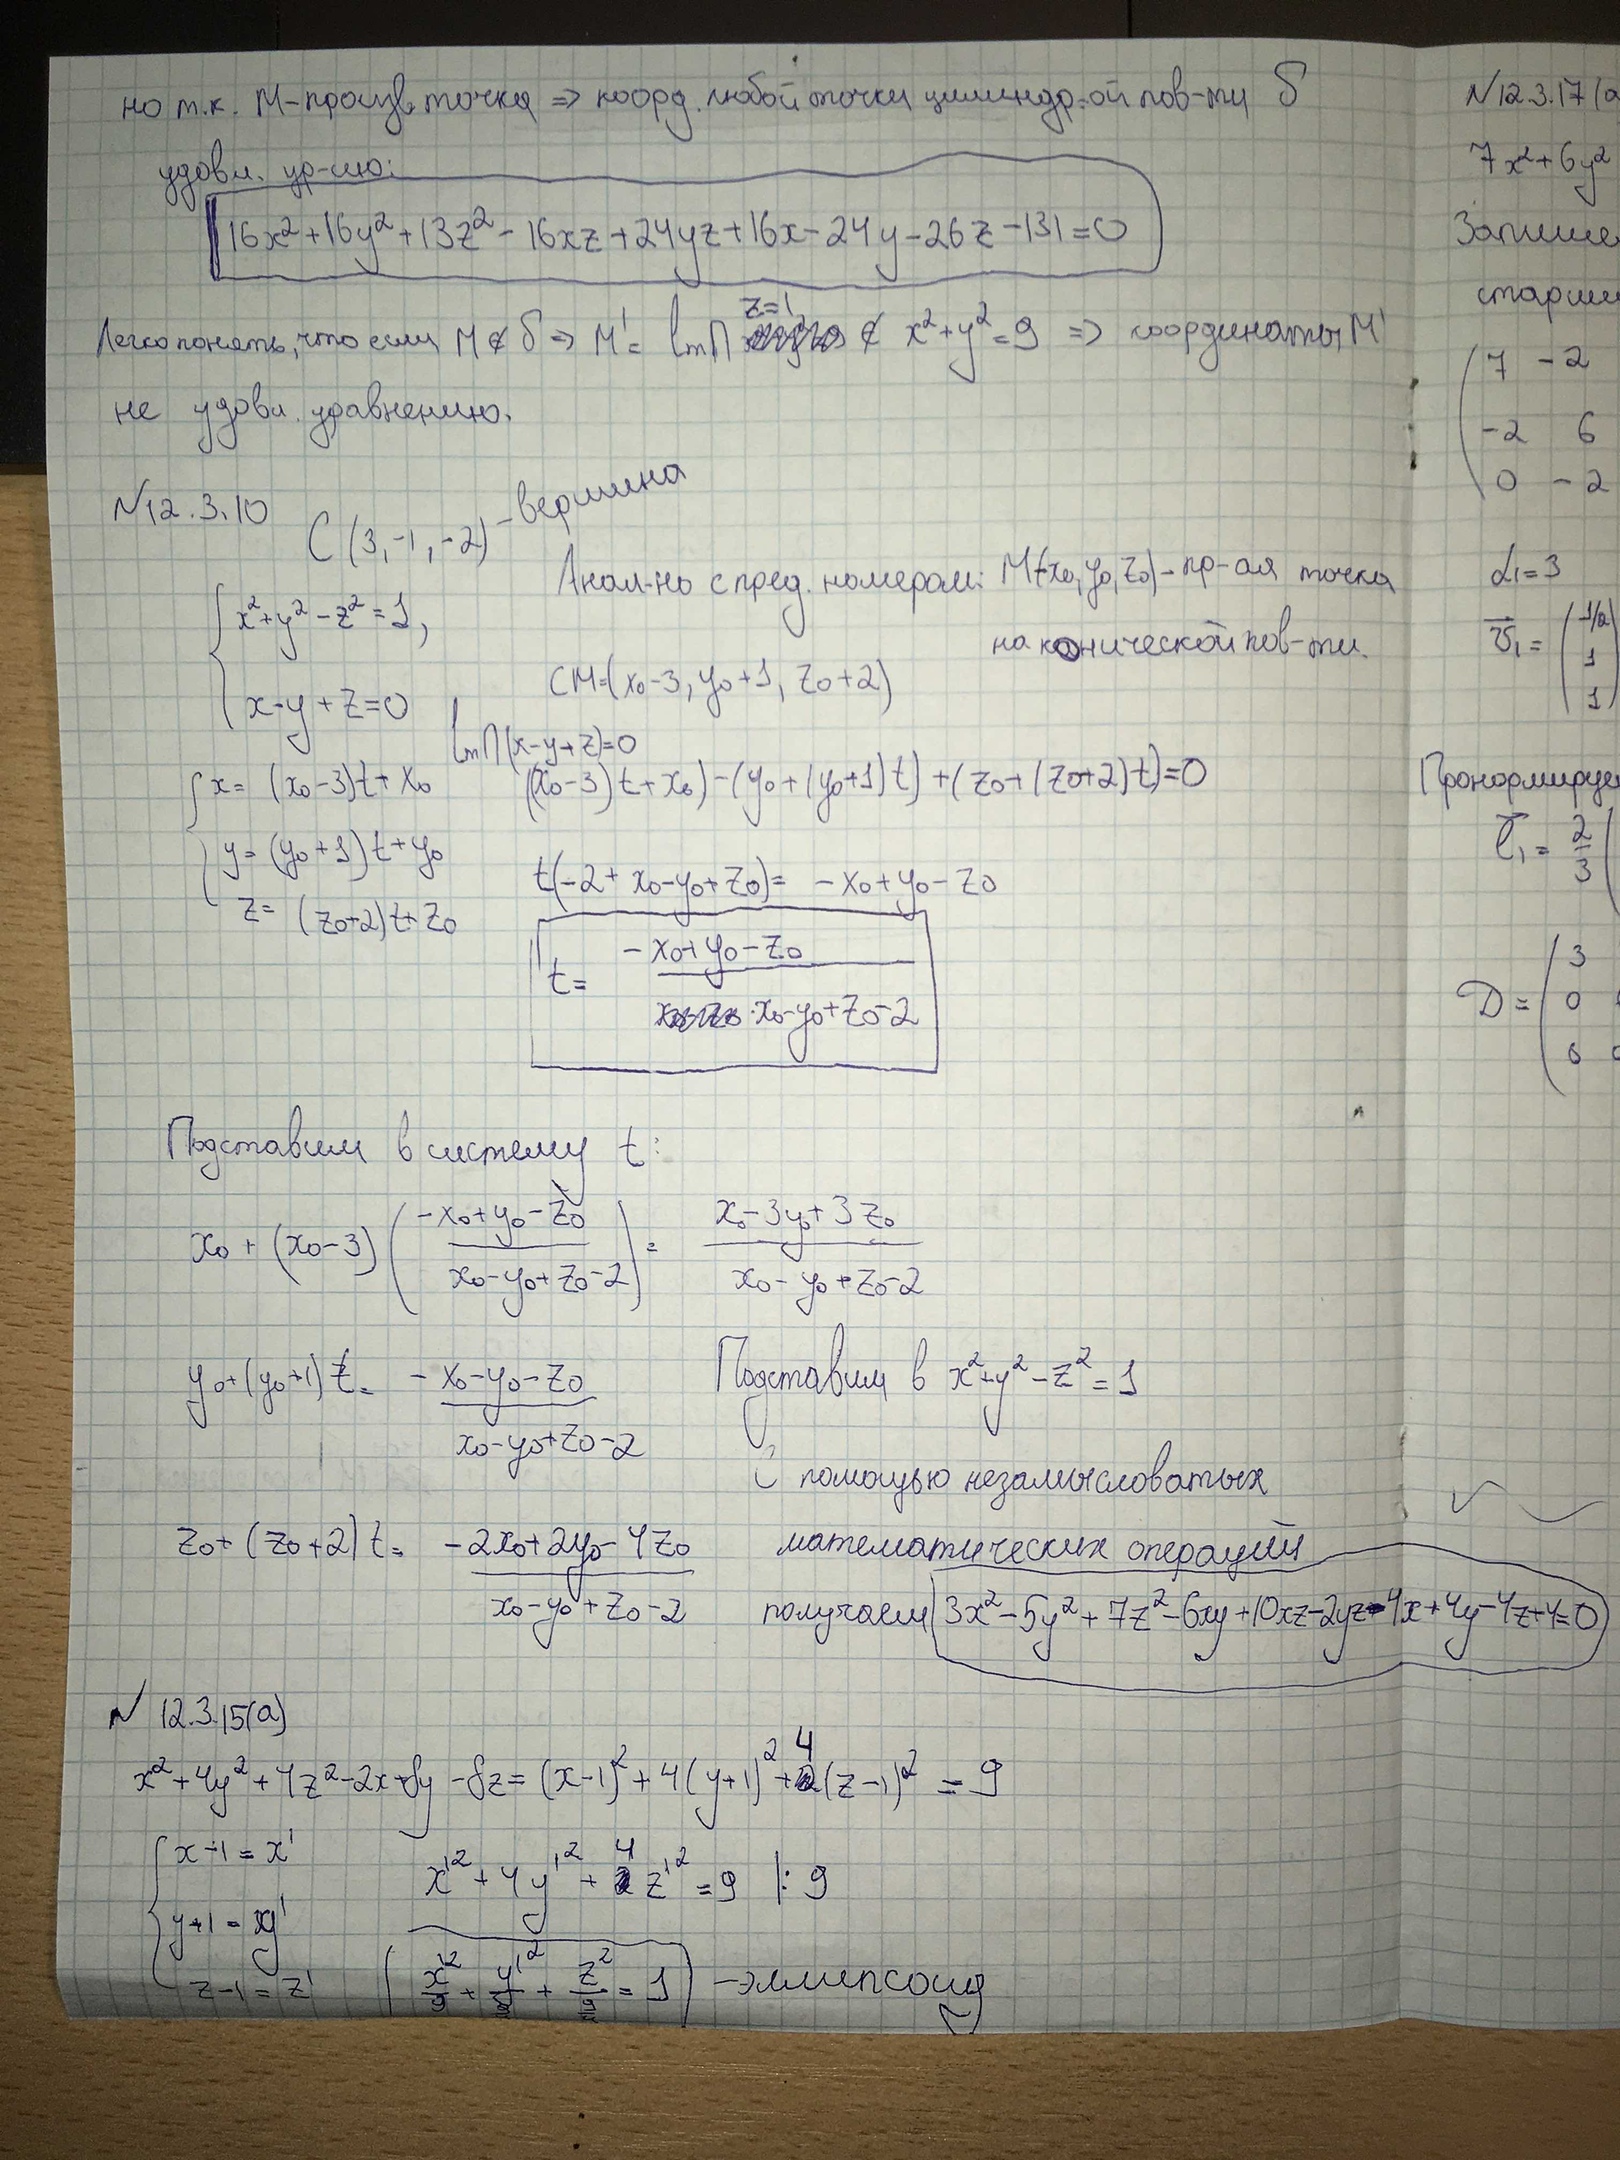 но т.к. М-произв. точка => коорд. любой точки цилиндр-ой пов-ти δ
удовл. ур-ию:
16x²+16y²+13z²-16xz+24yz+16x-24y-26z-131=0
Легко понять, что если M ∉ δ => M' = l_m ∩ z=1 ∉ x²+y²=9 => координаты M'
не удовл. уравнению.
N12.3.10
C(3,-1,-2) - вершина
{ x²+y²-z²=1,
x-y+z=0
Анал-но с пред. номером: M(x₀,y₀,z₀) - пр-ая точка
на конической пов-ти.
CM=(x₀-3, y₀+1, z₀+2)
l_m ∩ (x-y+z)=0
{ x= (x₀-3)t+x₀
y= (y₀+1)t+y₀
z= (z₀+2)t+z₀
((x₀-3)t+x₀)-(y₀+(y₀+1)t)+(z₀+(z₀+2)t)=0
t(-2+x₀-y₀+z₀)= -x₀+y₀-z₀
t= (-x₀+y₀-z₀)/(x₀-y₀+z₀-2)
Подставим в систему t:
x₀ + (x₀-3)((-x₀+y₀-z₀)/(x₀-y₀+z₀-2)) = (x₀-3y₀+3z₀)/(x₀-y₀+z₀-2)
y₀+(y₀+1)t= (-x₀-y₀-z₀)/(x₀-y₀+z₀-2)
Подставим в x²+y²-z²=1
С помощью незамысловатых
z₀+(z₀+2)t= (-2x₀+2y₀-4z₀)/(x₀-y₀+z₀-2)
математических операций
получаем 3x²-5y²+7z²-6xy+10xz-2yz-4x+4y-4z+4=0
N 12.3.15(а)
x²+4y²+4z²-2x+8y-8z=(x-1)²+4(y+1)²+4(z-1)²=9
{ x-1=x'
y+1=y'
z-1=z'
x'²+4y'²+4z'²=9 |:9
-эллипсоид
N12.3.17(а
7x²+6y²
Запише
старши
(7 -2
-2 6
0 -2
α₁=3
v₁=(1/2
1
1)
Пронормируе
l₁= 2/3 (
D=(3
0
0